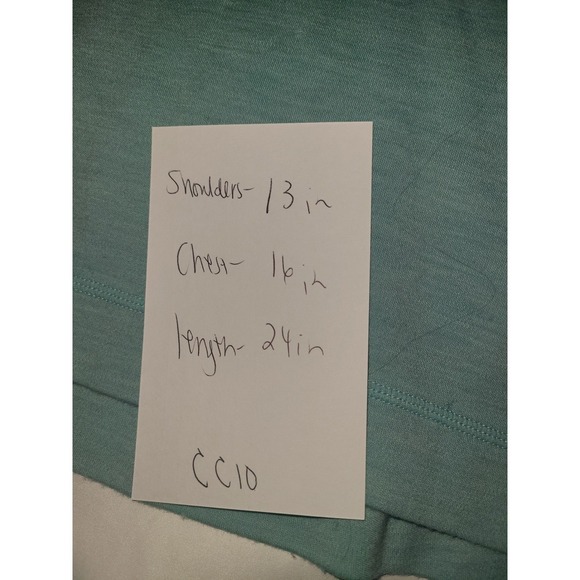 Shoulders- 13 in
Chest- 16 in
length- 24 in
CC10